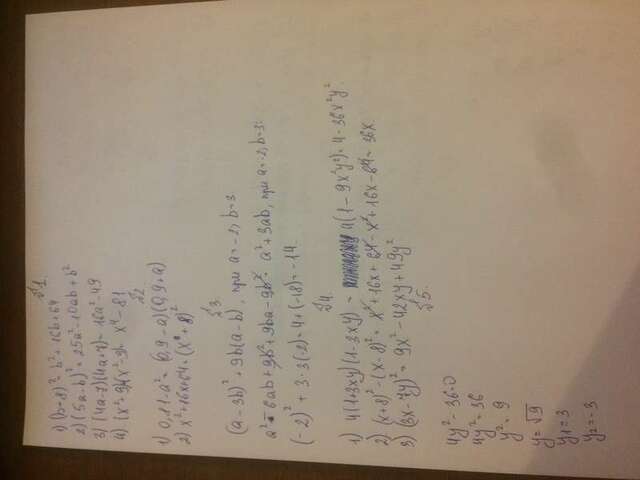 №1.
1) (b+8)² = b²+16b+64
2) (5a-b)² = 25a²-10ab+b²
3) (4a-7)(4a+7) = 16a²-49
4) (x²+9)(x²-9) = x⁴-81
№2
1) 0,81-a² = (0,9-a)(0,9+a)
2) x²+16x+64 = (x+8)²
№3
(a-3b)² + 9b(a-b), при a=-2, b=3
a²-6ab+9b²+9ba-9b² = a²+3ab, при a=-2, b=3:
(-2)² + 3·3(-2) = 4+(-18) = -14.
№4.
1) 4(1+3xy)(1-3xy) = 4(1-9x²y²) = 4-36x²y²
2) (x+8)²-(x-8)² = x²+16x+64-x²+16x-64 = 36x.
3) (3x-7y)² = 9x²-42xy+49y²
№5.
4y²-36=0
4y²=36
y²=9
y=√9
y₁=3
y₂=-3